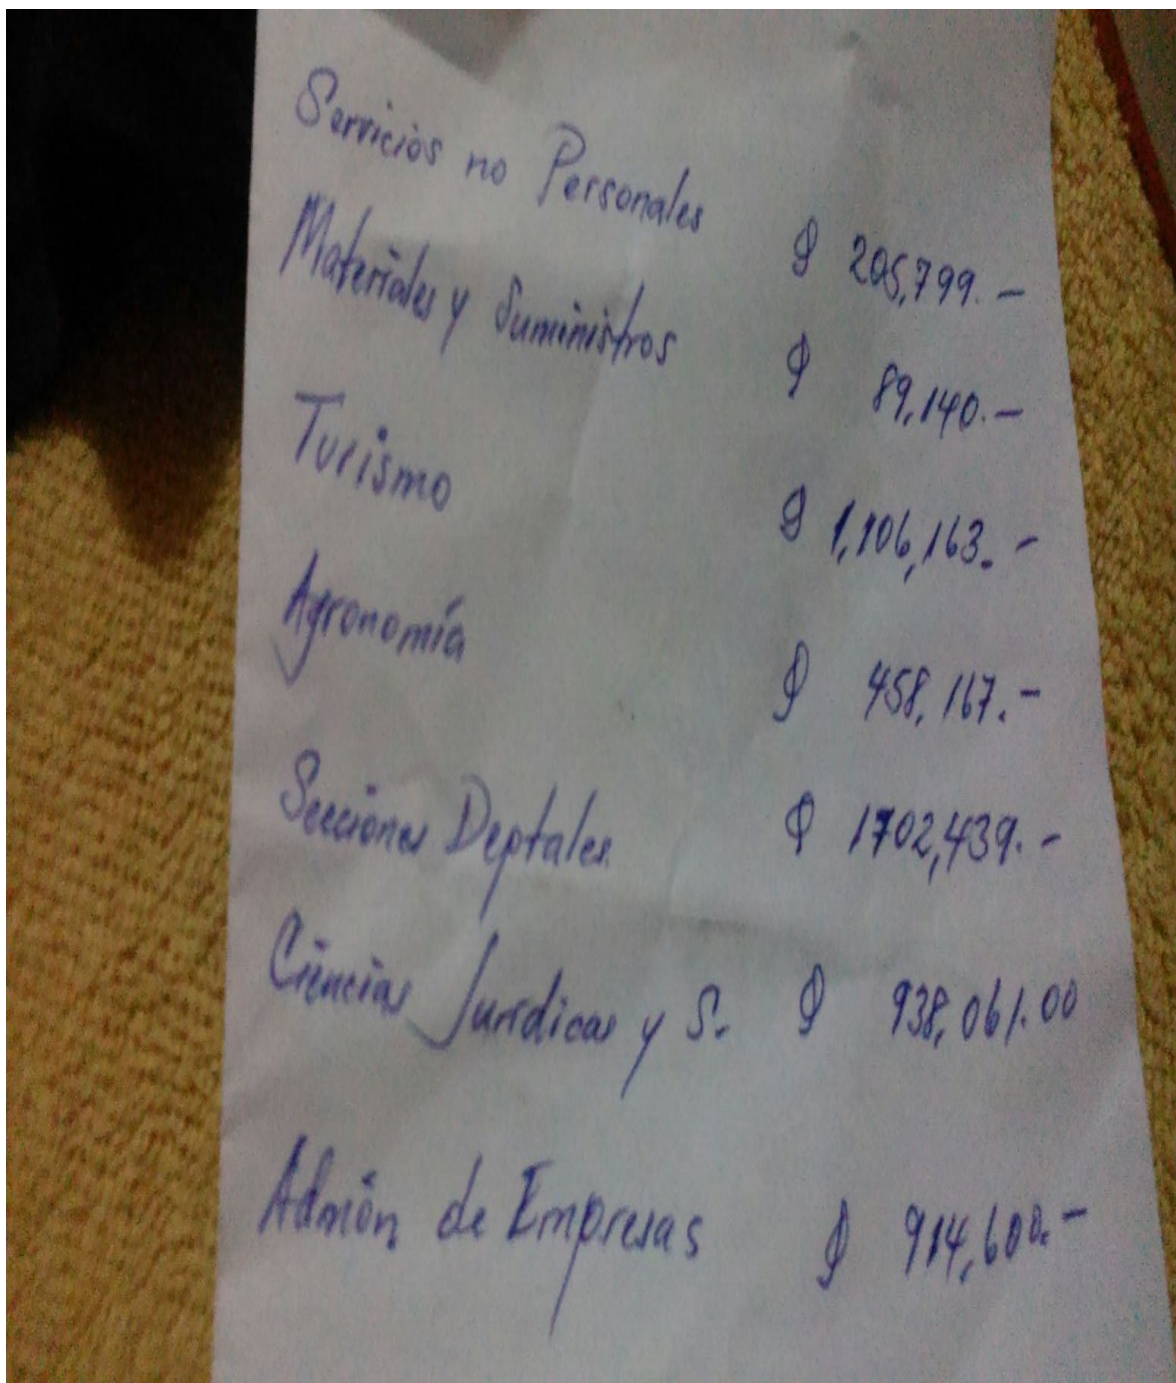 Servicios no Personales $ 205,799.-
Materiales y Suministros $ 89,140.-
Turismo $ 1,106,163.-
Agronomía $ 458,167.-
Secciones Deptales $ 1702,439.-
Ciencias Jurídicas y S. $ 938,061.00
Admón de Empresas $ 914,600.-